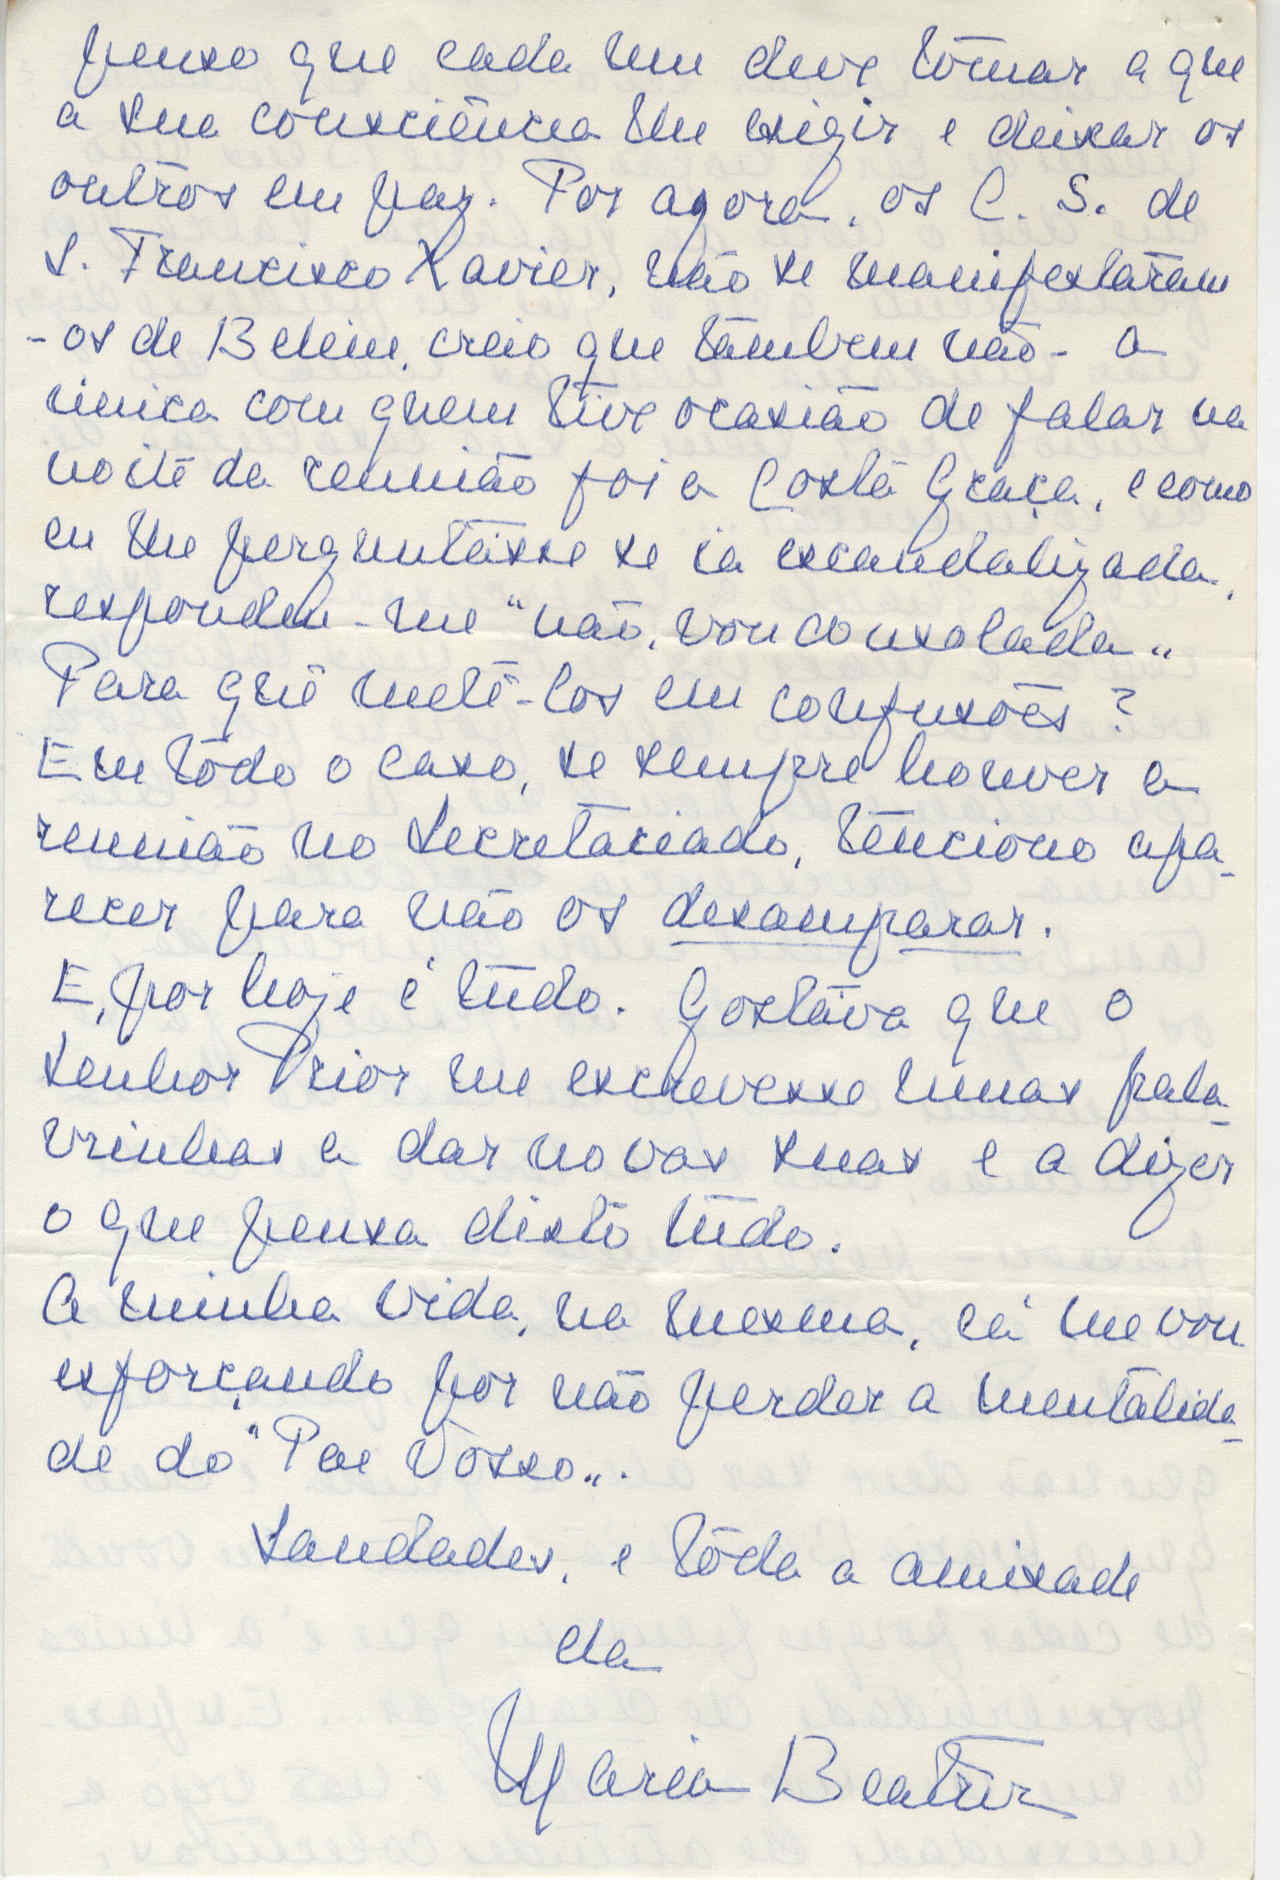 penso que cada um deve tomar a que
a sua consciência lhe exigir e deixar os
outros em paz. Por agora, os C. S. de
S. Francisco Xavier, não se manifestaram
- os de Belém, creio que também não - a
única com quem tive ocasião de falar na
noite da reunião foi a Costa Graça, e como
eu lhe perguntasse se ia escandalizada,
respondeu-me "não, vou consolada"
Para quê metê-los em confusões?
Em todo o caso, se sempre houver a
reunião no Secretariado, tenciono apa-
recer para não os desamparar.
E, por hoje é tudo. Gostava que o
Senhor Prior me escrevesse umas pala-
vrinhas a dar novas suas e a dizer
o que pensa disto tudo.
A minha vida, na mesma, cá me vou
esforçando por não perder a mentalida-
de do "Pae Nosso".
Saudades, e tôda a amizade
da
Maria Beatriz